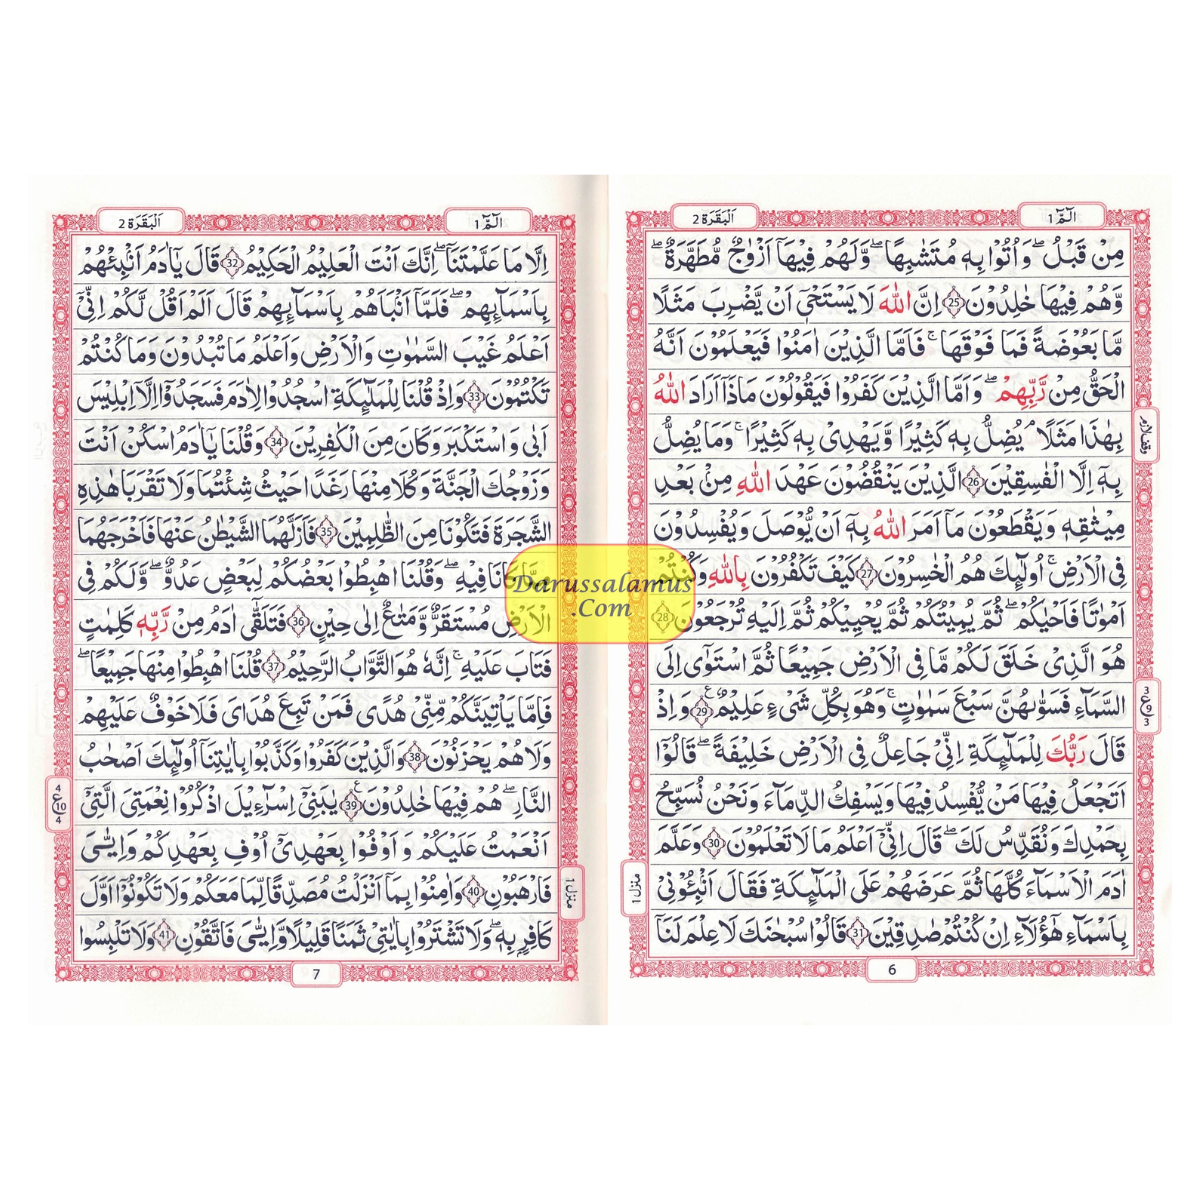 اَلْبَقَرَة 2
الٓمّٓ 1
مِنْ قَبْلُ ۙ وَاُتُوْا بِهٖ مُتَشَابِهًا ؕ وَلَهُمْ فِيْهَاۤ اَزْوَاجٌ مُّطَهَّرَةٌ ۙ
وَّهُمْ فِيْهَا خٰلِدُوْنَ 25 اِنَّ اللّٰهَ لَا يَسْتَحْيٖۤ اَنْ يَّضْرِبَ مَثَلًا
مَّا بَعُوْضَةً فَمَا فَوْقَهَا ؕ فَاَمَّا الَّذِيْنَ اٰمَنُوْا فَيَعْلَمُوْنَ اَنَّهُ
الْحَقُّ مِنْ رَّبِّهِمْ ۚ وَاَمَّا الَّذِيْنَ كَفَرُوْا فَيَقُوْلُوْنَ مَاذَاۤ اَرَادَ اللّٰهُ
بِهٰذَا مَثَلًا ۘ يُضِلُّ بِهٖ كَثِيْرًا وَّيَهْدِىْ بِهٖ كَثِيْرًا ؕ وَمَا يُضِلُّ
بِهٖۤ اِلَّا الْفٰسِقِيْنَ 26 الَّذِيْنَ يَنْقُضُوْنَ عَهْدَ اللّٰهِ مِنْۢ بَعْدِ
مِيْثَاقِهٖ وَيَقْطَعُوْنَ مَاۤ اَمَرَ اللّٰهُ بِهٖۤ اَنْ يُّوْصَلَ وَيُفْسِدُوْنَ
فِى الْاَرْضِ ؕ اُولٰٓئِكَ هُمُ الْخٰسِرُوْنَ 27 كَيْفَ تَكْفُرُوْنَ بِاللّٰهِ وَكُنْتُمْ
اَمْوَاتًا فَاَحْيَاكُمْ ۚ ثُمَّ يُمِيْتُكُمْ ثُمَّ يُحْيِيْكُمْ ثُمَّ اِلَيْهِ تُرْجَعُوْنَ 28
هُوَ الَّذِىْ خَلَقَ لَكُمْ مَّا فِى الْاَرْضِ جَمِيْعًا ثُمَّ اسْتَوٰٓى اِلَى
السَّمَآءِ فَسَوّٰىهُنَّ سَبْعَ سَمٰوٰتٍ ؕ وَهُوَ بِكُلِّ شَىْءٍ عَلِيْمٌ 29 وَاِذْ
قَالَ رَبُّكَ لِلْمَلٰٓئِكَةِ اِنِّىْ جَاعِلٌ فِى الْاَرْضِ خَلِيْفَةً ؕ قَالُوْۤا
اَتَجْعَلُ فِيْهَا مَنْ يُّفْسِدُ فِيْهَا وَيَسْفِكُ الدِّمَآءَ ۚ وَنَحْنُ نُسَبِّحُ
بِحَمْدِكَ وَنُقَدِّسُ لَكَ ؕ قَالَ اِنِّىْۤ اَعْلَمُ مَا لَا تَعْلَمُوْنَ 30 وَعَلَّمَ
اٰدَمَ الْاَسْمَآءَ كُلَّهَا ثُمَّ عَرَضَهُمْ عَلَى الْمَلٰٓئِكَةِ فَقَالَ اَنْۢبِئُوْنِىْ
بِاَسْمَآءِ هٰٓؤُلَآءِ اِنْ كُنْتُمْ صٰدِقِيْنَ 31 قَالُوْا سُبْحٰنَكَ لَا عِلْمَ لَنَاۤ
وقف لازم
3
ع 9
3
منزل 1
6
اَلْبَقَرَة 2
الٓمّٓ 1
اِلَّا مَا عَلَّمْتَنَا ؕ اِنَّكَ اَنْتَ الْعَلِيْمُ الْحَكِيْمُ 32 قَالَ يٰۤاٰدَمُ اَنْۢبِئْهُمْ
بِاَسْمَآئِهِمْ ۚ فَلَمَّاۤ اَنْۢبَاَهُمْ بِاَسْمَآئِهِمْ قَالَ اَلَمْ اَقُلْ لَّكُمْ اِنِّىْۤ
اَعْلَمُ غَيْبَ السَّمٰوٰتِ وَالْاَرْضِ وَاَعْلَمُ مَا تُبْدُوْنَ وَمَا كُنْتُمْ
تَكْتُمُوْنَ 33 وَاِذْ قُلْنَا لِلْمَلٰٓئِكَةِ اسْجُدُوْا لِاٰدَمَ فَسَجَدُوْۤا اِلَّاۤ اِبْلِيْسَ
اَبٰى وَاسْتَكْبَرَ وَكَانَ مِنَ الْكٰفِرِيْنَ 34 وَقُلْنَا يٰۤاٰدَمُ اسْكُنْ اَنْتَ
وَزَوْجُكَ الْجَنَّةَ وَكُلَا مِنْهَا رَغَدًا حَيْثُ شِئْتُمَا وَلَا تَقْرَبَا هٰذِهِ
الشَّجَرَةَ فَتَكُوْنَا مِنَ الظّٰلِمِيْنَ 35 فَاَزَلَّهُمَا الشَّيْطٰنُ عَنْهَا فَاَخْرَجَهُمَا
مِمَّا كَانَا فِيْهِ ۪ وَقُلْنَا اهْبِطُوْا بَعْضُكُمْ لِبَعْضٍ عَدُوٌّ ۚ وَلَكُمْ فِى
الْاَرْضِ مُسْتَقَرٌّ وَّمَتَاعٌ اِلٰى حِيْنٍ 36 فَتَلَقّٰٓى اٰدَمُ مِنْ رَّبِّهٖ كَلِمٰتٍ
فَتَابَ عَلَيْهِ ؕ اِنَّهٗ هُوَ التَّوَّابُ الرَّحِيْمُ 37 قُلْنَا اهْبِطُوْا مِنْهَا جَمِيْعًا ۚ
فَاِمَّا يَاْتِيَنَّكُمْ مِّنِّىْ هُدًى فَمَنْ تَبِعَ هُدَاىَ فَلَا خَوْفٌ عَلَيْهِمْ
وَلَا هُمْ يَحْزَنُوْنَ 38 وَالَّذِيْنَ كَفَرُوْا وَكَذَّبُوْا بِاٰيٰتِنَاۤ اُولٰٓئِكَ اَصْحٰبُ
النَّارِ ۚ هُمْ فِيْهَا خٰلِدُوْنَ 39 يٰبَنِىْۤ اِسْرَآءِيْلَ اذْكُرُوْا نِعْمَتِىَ الَّتِىْۤ
اَنْعَمْتُ عَلَيْكُمْ وَاَوْفُوْا بِعَهْدِىْۤ اُوْفِ بِعَهْدِكُمْ وَاِيَّاىَ
فَارْهَبُوْنِ 40 وَاٰمِنُوْا بِمَاۤ اَنْزَلْتُ مُصَدِّقًا لِّمَا مَعَكُمْ وَلَا تَكُوْنُوْۤا اَوَّلَ
كَافِرٍۭ بِهٖ ۪ وَلَا تَشْتَرُوْا بِاٰيٰتِىْ ثَمَنًا قَلِيْلًا وَّاِيَّاىَ فَاتَّقُوْنِ 41 وَلَا تَلْبِسُوا
4
ع 10
4
منزل 1
7
Darussalamus
.Com